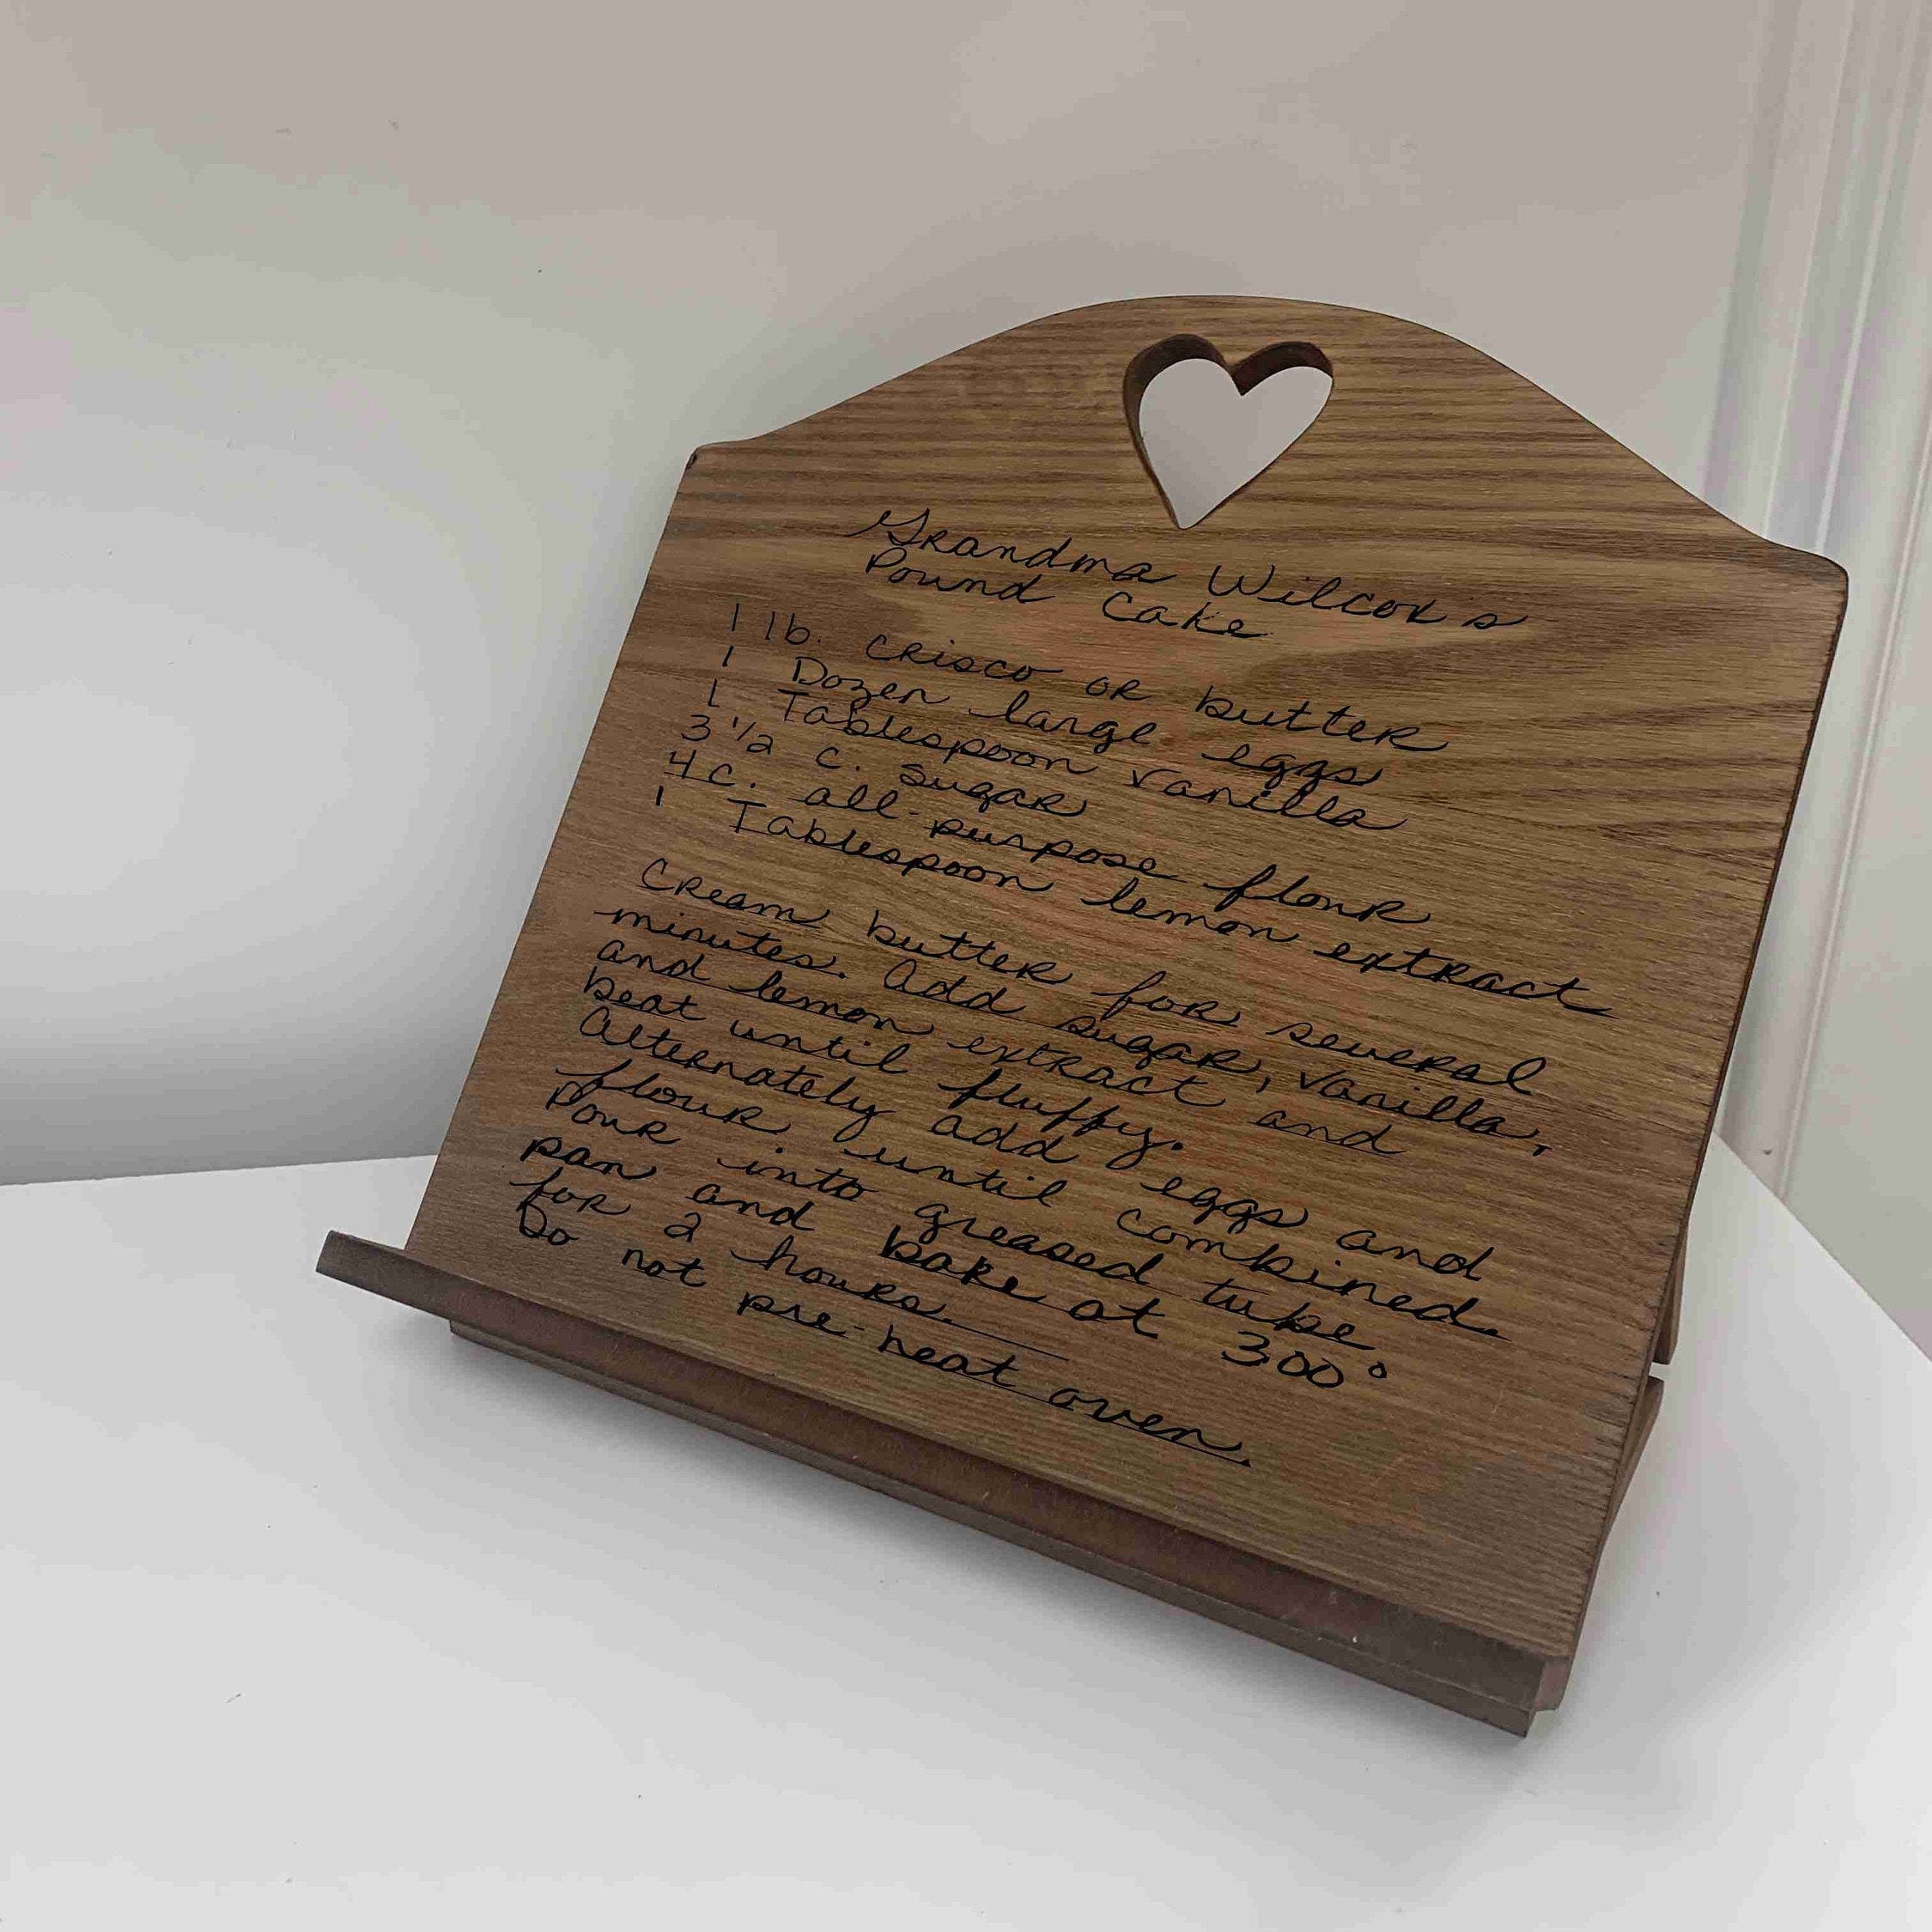 Grandma Wilcox's
Pound Cake
1 lb. Crisco or butter
1 Dozen large eggs
1 Tablespoon vanilla
3 1/2 c. sugar
4 c. all-purpose flour
1 Tablespoon lemon extract
Cream butter for several
minutes. Add sugar, vanilla,
and lemon extract and
beat until fluffy.
Alternately add eggs and
flour until combined.
Pour into greased tube
pan and bake at 300°
for 2 hours.
Do not pre-heat oven.